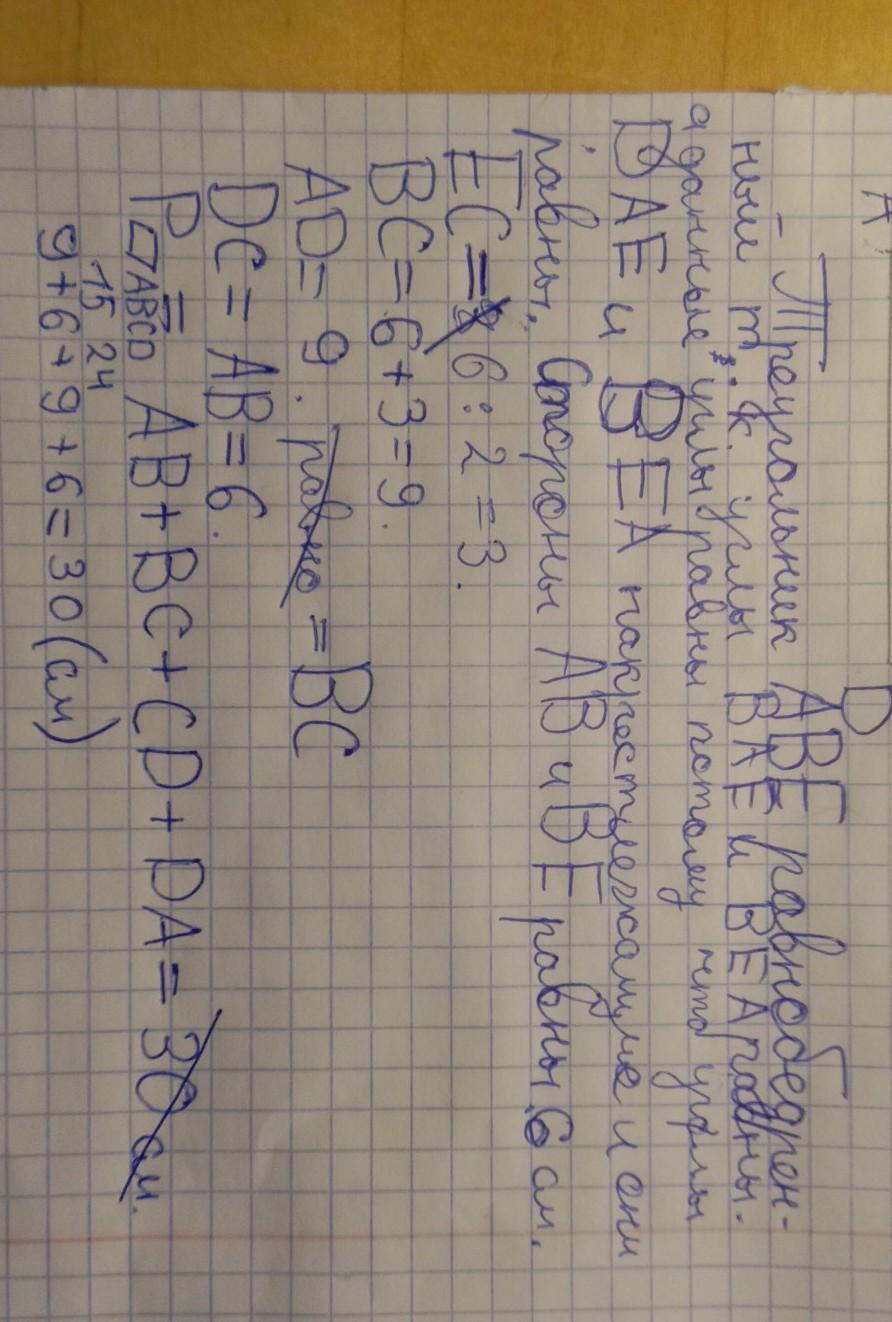 A D
- Треугольник ABE равнобедрен-
ным т.к. углы BAE и BEA равны.
а данные углы равны потому что углы
DAE и BEA накрест лежащие и они
равны, Стороны AB и BE равны 6 см.
EC = 6 : 2 = 3.
BC = 6 + 3 = 9.
AD = 9. равно = BC
DC = AB = 6.
P▱ABCD = AB + BC + CD + DA = 30 см.
15 24
9 + 6 + 9 + 6 = 30 (см)